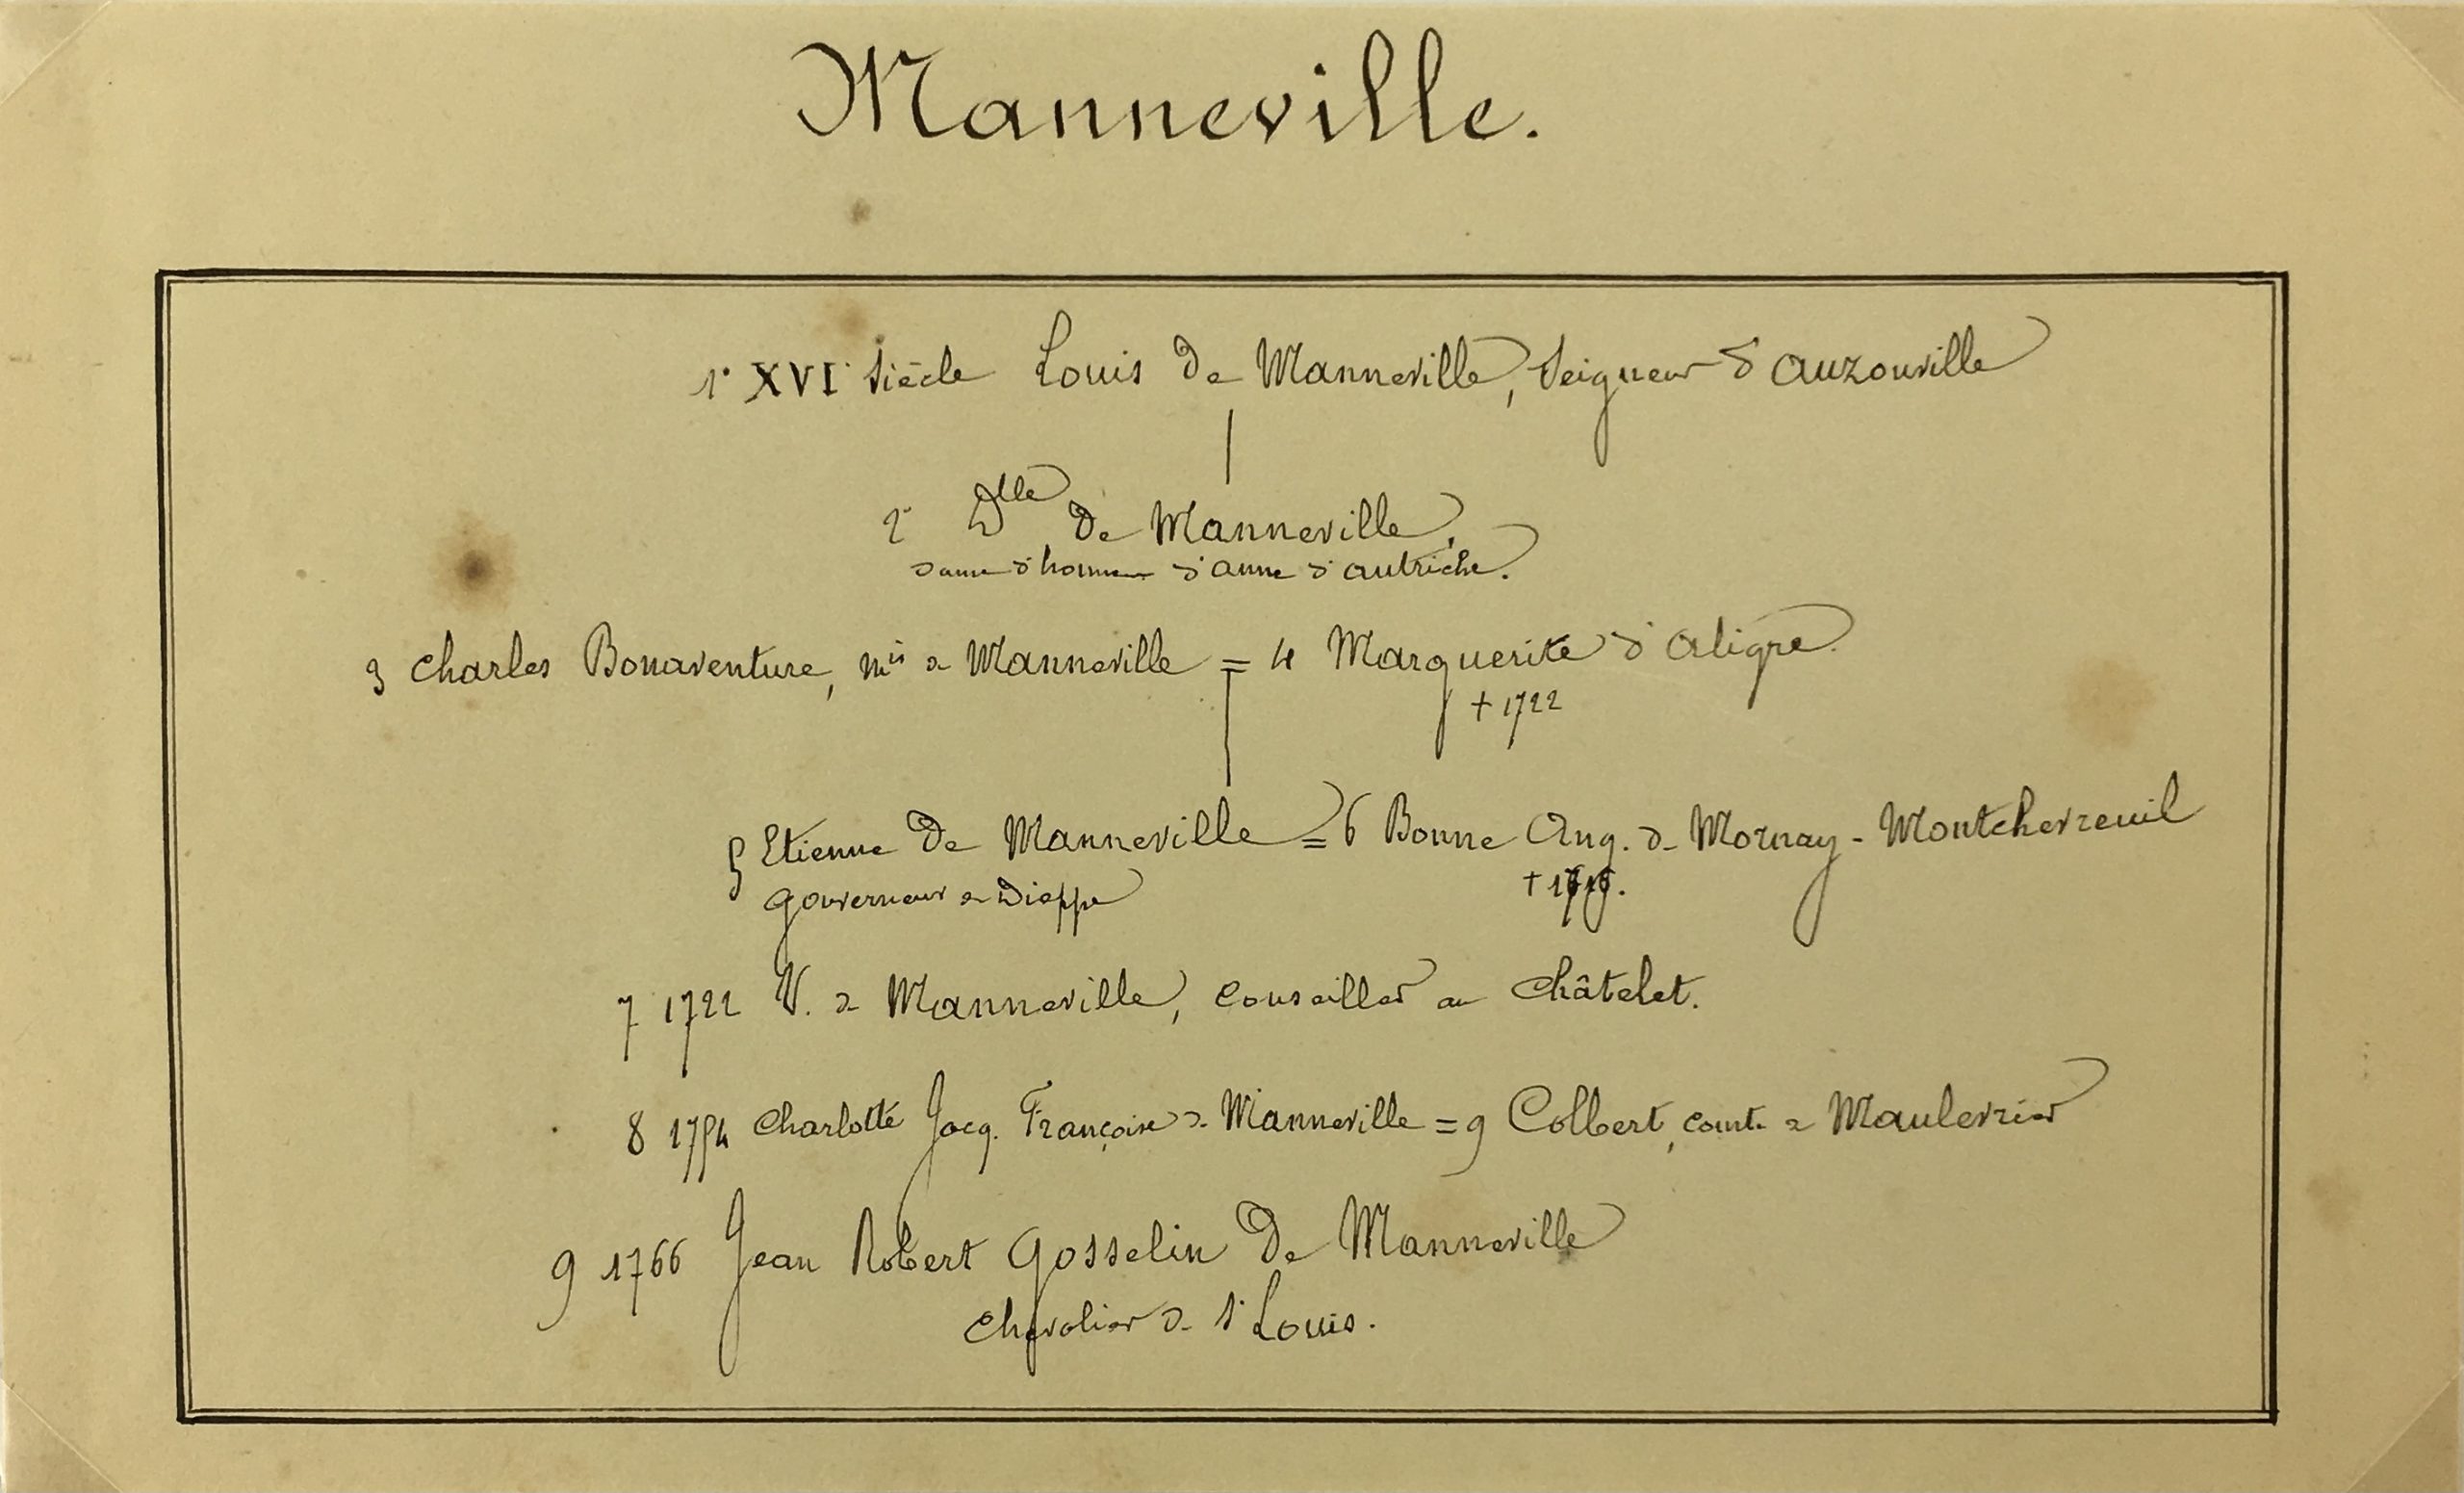 Manneville.
1° XVI° Siècle Louis De Manneville, Seigneur d'Auzouville
2° Dlle De Manneville,
dame d'honneur d'anne d'autriche.
3 Charles Bonaventure, mis de Manneville = 4 Marguerite d'Aligre.
+ 1722
5 Etienne De Manneville = 6 Bonne Ang. de Mornay-Montchevreuil
Gouverneur de Dieppe
7 1722 V. de Manneville, conseiller au Châtelet.
8 1754 Charlotte Jacq. Françoise de Manneville = 9 Colbert, comte de Maulevrier
9 1766 Jean Robert Gosselin De Manneville
Chevalier de St Louis.